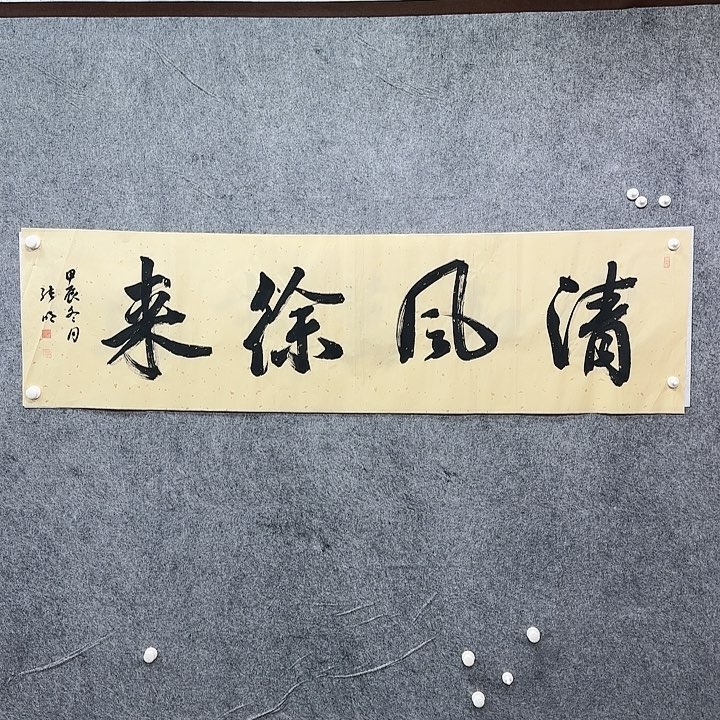 清风徐来
甲辰冬月
张明